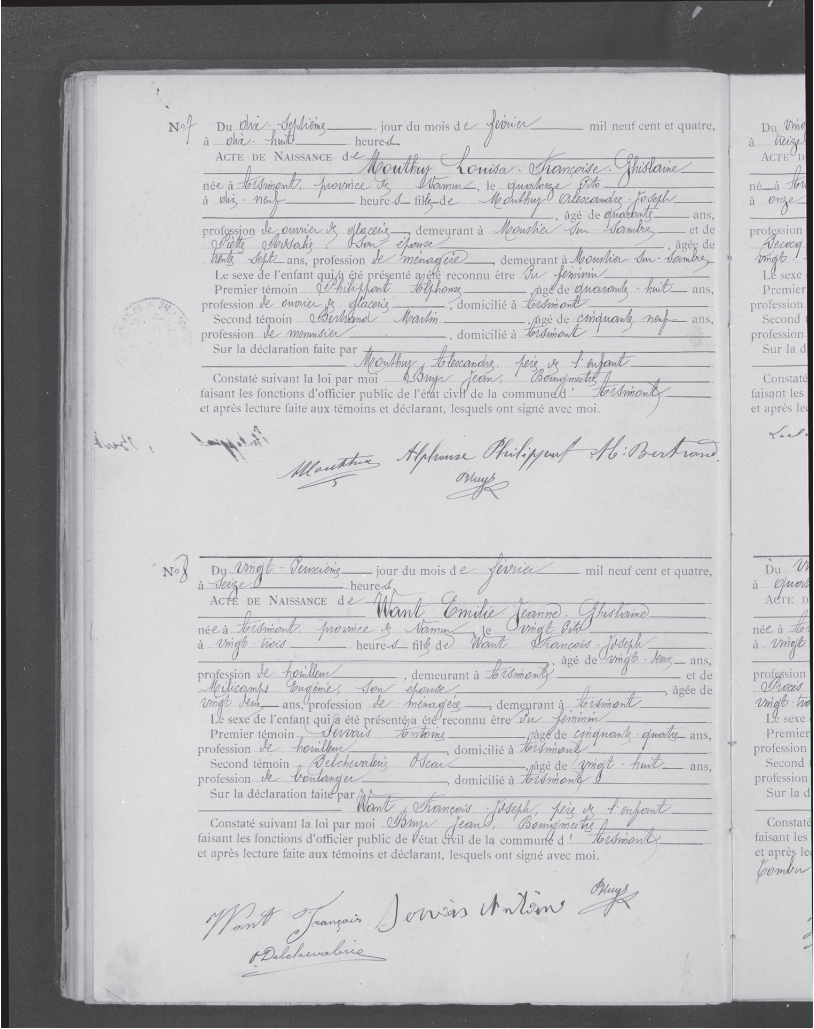 No 7 Du dix-septième jour du mois de février mil neuf cent et quatre,
à dix-huit heures
ACTE DE NAISSANCE de Mouthuy Louisa-Françoise-Ghislaine
née à Arsimont, province de Namur, le quatorze dito
à dix-neuf heures fille de Mouthuy Alexandre-Joseph
, âgé de quarante ans,
profession de ouvrier de glacerie, demeurant à Moustier-sur-Sambre et de
Piette Rosalie son épouse, âgée de
trente sept ans, profession de ménagère, demeurant à Moustier-sur-Sambre
Le sexe de l'enfant qui a été présenté a été reconnu être du féminin
Premier témoin Philippart Alphonse, âgé de quarante-huit ans,
profession de ouvrier de glacerie, domicilié à Arsimont
Second témoin Bertrand Martin, âgé de cinquante neuf ans,
profession de menuisier, domicilié à Arsimont
Sur la déclaration faite par
Mouthuy Alexandre, père de l'enfant
Constaté suivant la loi par moi Bruyr Jean, Bourgmestre
faisant les fonctions d'officier public de l'état civil de la commune d'Arsimont
et après lecture faite aux témoins et déclarant, lesquels ont signé avec moi.
AMouthuy Alphonse Philippart M. Bertrand
Bruyr
No 8 Du vingt-deuxième jour du mois de février mil neuf cent et quatre,
à seize heures
ACTE DE NAISSANCE de Want Emilie Jeanne-Ghislaine
née à Arsimont, province de Namur, le vingt dito
à vingt-trois heures fille de Want François-Joseph
, âgé de vingt-deux ans,
profession de houilleur, demeurant à Arsimont et de
Milicamps Eugénie, son épouse, âgée de
vingt deux ans, profession de ménagère, demeurant à Arsimont
Le sexe de l'enfant qui a été présenté a été reconnu être du féminin
Premier témoin Servais Antoine, âgé de cinquante-quatre ans,
profession de houilleur, domicilié à Arsimont
Second témoin Delchevalerie Oscar, âgé de vingt-huit ans,
profession de boulanger, domicilié à Arsimont
Sur la déclaration faite par
Want François-Joseph, père de l'enfant
Constaté suivant la loi par moi Bruyr Jean, Bourgmestre
faisant les fonctions d'officier public de l'état civil de la commune d'Arsimont
et après lecture faite aux témoins et déclarant, lesquels ont signé avec moi.
Bruyr
Want François Servais Antoine
O. Delchevalerie
Du
à treize
ACTE D
né à
à onze
profession
Decocq
vingt-
Le sexe
Premier
profession
Second
profession
Sur la d
Constaté
faisant les
et après le
Du
à
ACTE D
née à
à vingt
profession
vingt-
Le sexe
Premier
profession
Second
profession
Sur la d
Constaté
faisant les
et après le